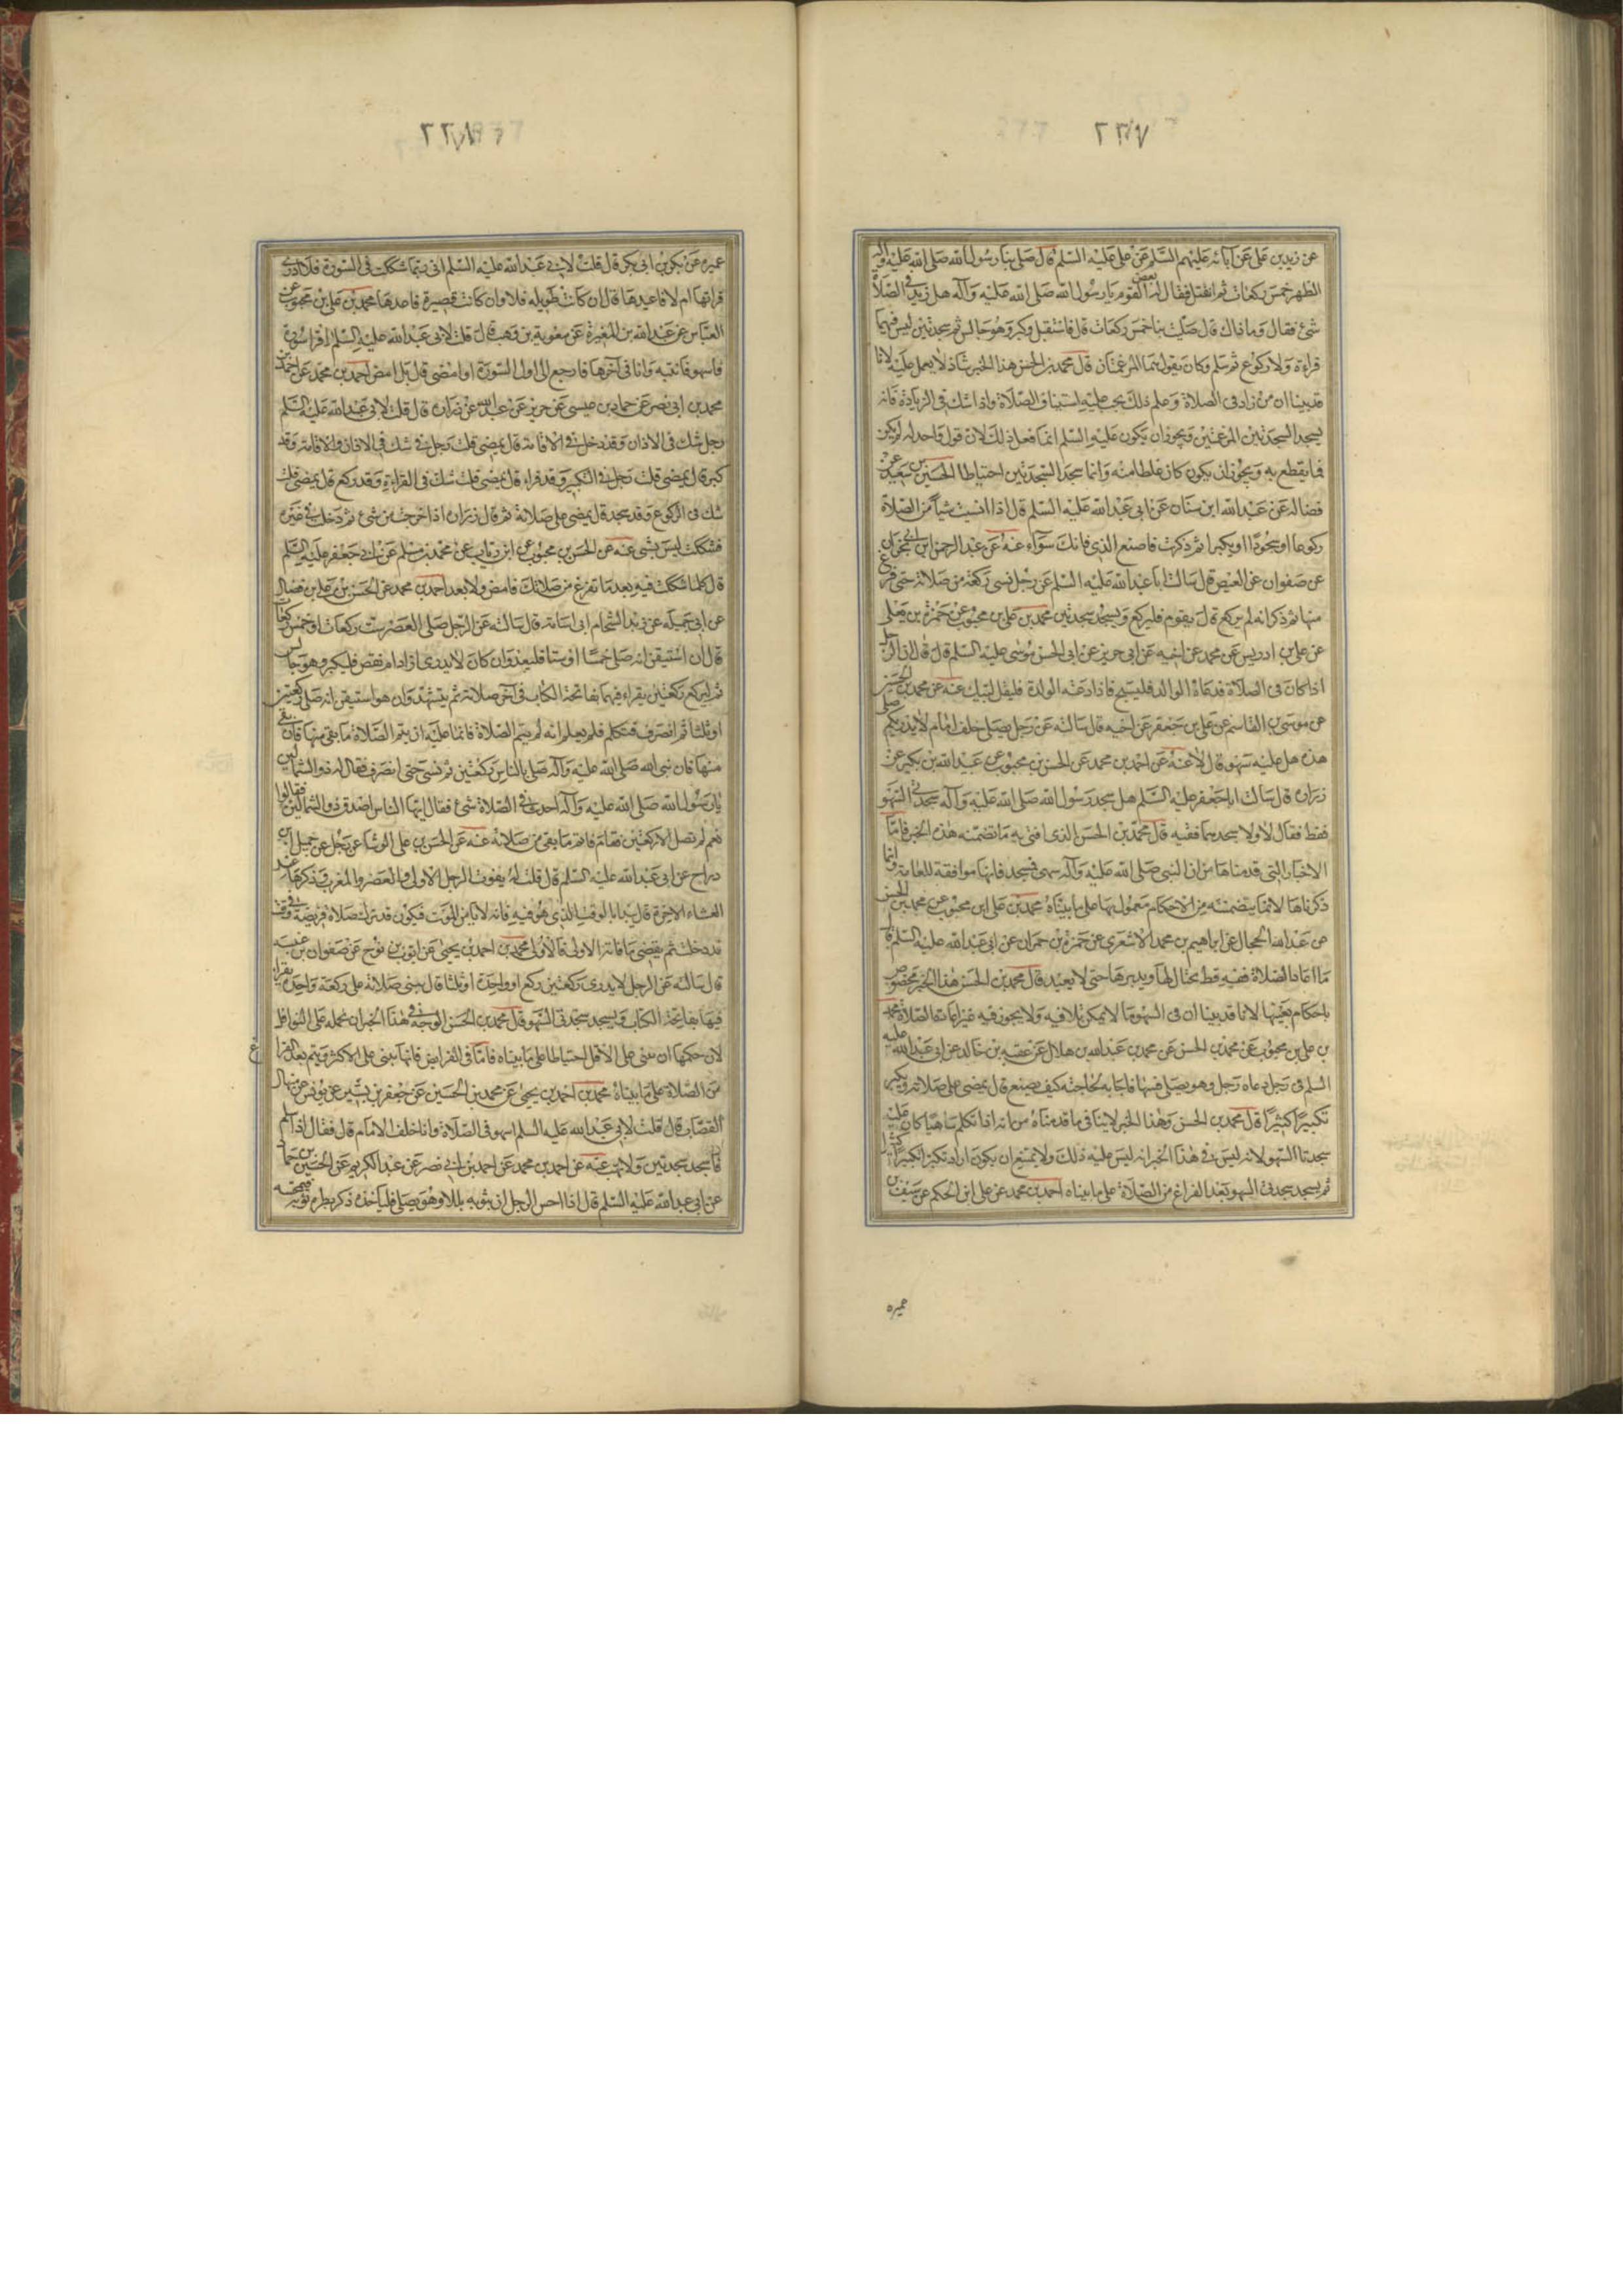 ٢٢٧
عن زيد بن على عن آبائه عليهم السلم عن على عليه السلم قال صلى بنا رسول الله صلى الله عليه وآله
الظهر خمس ركعات ثم انفتل فقال له بعض القوم يا رسول الله صلى الله عليه وآله هل زيد فى الصلاة
شئ فقال وما ذاك قال صليت بنا خمس ركعات قال فاستقبل وكبر وهو جالس ثم سجدتين ليس فيهما
قراءة ولا ركوع ثم سلم وكان يقول هما المرغمتان قال محمد بن الحسن هذا الخبر شاذ لا يعمل عليه لانا
قد بينا ان من زاد فى الصلاة وعلم ذلك يجب عليه استيناف الصلاة واذا شك فى الزيادة فانه
يسجد السجدتين المرغمتين ويجوز ان يكون عليه السلم انما فعل ذلك لان قول واحد له لم يكن
مما يقطع به ويجوز ان يكون كان غلطا منه وانما سجد السجدتين احتياطا الحسين بن سعيد عن
فضاله عن عبد الله ابن سنان عن ابى عبد الله عليه السلم قال اذا نسيت شيأ من الصلاة
ركوعا او سجودا او تكبيرا ثم ذكرت فاصنع الذى فاتك سواء عنه عن عبد الرحمن ابن ابى نجران
عن صفوان عن العيص قال سالت ابا عبد الله عليه السلم عن رجل نسى ركعة من صلاته حتى فرغ
منها ثم ذكر انه لم يركع قال يقوم فليركع ويسجد سجدتين محمد بن على بن محبوب عن حمزة بن يعلى
عن على بن ادريس عن محمد عن اخيه عن ابى جرير عن ابى الحسن موسى عليه السلم قال قال ان الرجل
اذا كان فى الصلاة فدعاه الوالد فليسبح فاذا دعته الوالدة فليقل لبيك عنه عن محمد بن الحسين
عن موسى بن القاسم عن على بن جعفر عن اخيه قال سالته عن رجل يصلى خلف امام لا يدرى كم صلى
هذه هل عليه سهو قال لا عنه عن احمد بن محمد عن الحسن بن محبوب عن عبد الله بن بكير عن
زرارة قال سالت ابا جعفر عليه السلم هل سجد رسول الله صلى الله عليه وآله سجدتى السهو
فقط فقال لا ولا يسجدهما فقيه قال محمد بن الحسن الذى افتى به ما تضمنه هذا الخبر فاما
الاخبار التى قدمناها من ان النبى صلى الله عليه وآله سهى فسجد فانها موافقة للعامة وانما
ذكرناها لان ما يتضمنه من الاحكام معمول بها على ما بيناه محمد بن على ابن محبوب عن محمد بن الحسين
عن عبد الله الحجال عن ابراهيم بن محمد الاشعرى عن حمزة بن حمران عن ابى عبد الله عليه السلم قال
ما اعاد الصلاة فقيه قط يحتال لها ويدبرها حتى لا يعيد قال محمد بن الحسن هذا الخبر مخصوص
باحكام بعينها لانا قد بينا ان فى السهو ما لا يمكن تلافيه ولا يجوز فيه غير اعادة الصلاة محمد
بن على بن محبوب عن محمد بن الحسن عن محمد بن عبد الله بن هلال عن عقبه بن خالد عن ابى عبد الله عليه
السلم فى رجل دعاه رجل وهو يصلى فسها فاجابه لحاجته كيف يصنع قال يمضى على صلاته ويكبر
تكبيرا كثيرا قال محمد بن الحسن وهذا الخبر لا ينافى ما قدمناه من انه اذا تكلم ساهيا كان عليه
سجدتا السهو لانه ليس فى هذا الخبر انه ليس عليه ذلك ولا يمتنع ان يكون اراد تكبر تكبيرا كثيرا
ثم يسجد سجدتى السهو بعد الفراغ من الصلاة على ما بيناه احمد بن محمد عن على ابن الحكم عن سيف بن
عميره
٢٢٨
عميره عن بكر بن ابى بكر قال قلت لابى عبد الله عليه السلم انى ربما شككت فى السورة فلا ادرى
قراتها ام لا فاعيدها قال ان كانت طويله فلا وان كانت قصيرة فاعدها محمد بن على بن محبوب عن
العباس عن عبد الله بن المغيرة عن معوية بن وهب قال قلت لابى عبد الله عليه السلم اقرا سورة
فاسهو فانتبه وانا فى آخرها فارجع الى اول السورة او امضى قال بل امض احمد بن محمد عن احمد بن
محمد بن ابى نصر عن حماد بن عيسى عن حريز عن عبد الله عن زرارة قال قلت لابى عبد الله عليه السلم
رجل شك فى الاذان وقد دخل فى الاقامة قال يمضى قلت رجل شك فى الاذان والاقامة وقد
كبر قال يمضى قلت رجل فى التكبير وقد قراء قال يمضى قلت شك فى القراءة وقد ركع قال يمضى قلت
شك فى الركوع وقد سجد قال يمضى على صلاته ثم قال زرارة اذا خرجت من شئ ثم دخلت فى غيره
فشكك ليس بشى عنه عن الحسن بن محبوب عن ابن رياب عن محمد بن مسلم عن ابى جعفر عليه السلم
قال كلما شككت فيه بعد ما تفرغ من صلاتك فامض ولا تعد احمد بن محمد عن الحسن بن على بن فضال
عن ابى جميله عن زيد الشحام ابى اسامة قال سالته عن الرجل صلى العصر ست ركعات او خمس ركعات
قال ان استيقن انه صلى خمسا او ستا فليعد وان كان لا يدرى ازاد ام نقص فليكبر وهو جالس
ثم ليركع ركعتين يقراء فيهما بفاتحة الكتاب فى آخر صلاته ثم يتشهد وان هو استيقن انه صلى ركعتين
او ثلثا ثم انصرف فتكلم فلم يعلم انه لم يتم الصلاة فانما عليه ان يتم الصلاة ما بقى منها فان بقى
منها فان نبى الله صلى الله عليه وآله صلى بالناس ركعتين ثم نسى حتى انصرف فقال له ذو الشمالين
يا رسول الله صلى الله عليه وآله احدث فى الصلاة شئ فقال ايها الناس اصدق ذو الشمالين فقالوا
نعم لم تصل الا ركعتين فقام فاتم ما بقى من صلاته عنه عن الحسن بن على الوشا عن رجل عن جميل بن
دراج عن ابى عبد الله عليه السلم قال قلت له يفوت الرجل الاولى والعصر والمغرب وذكرها عند
العشاء الاخرة قال يبدا بالوقت الذى هو فيه فانه لا يامن الموت فيكون قد ترك صلاة فريضة فى وقت
قد دخلت ثم يقضى ما فاته الاولى فالاولى محمد بن احمد بن يحيى عن ايوب بن نوح عن صفوان عن عنبسه
قال سالته عن الرجل لا يدرى ركعتين ركع او واحدة او ثلثا قال يبنى صلاته على ركعة واحدة يقراء
فيها بفاتحة الكتاب ويسجد سجدتى السهو قال محمد بن الحسن الوجه فى هذا الخبر ان نحمله على النوافل
لان حكمها ان يبنى على الاقل احتياطا على ما بيناه فاما فى الفرايض فانها يبنى على الاكثر ويتم بعد الفراغ
من الصلاة على ما بيناه محمد بن احمد بن يحيى عن محمد بن الحسين عن جعفر بن بشير عن يونس عن منهال
القصاب قال قلت لابى عبد الله عليه السلم اسهو فى الصلاة وانا خلف الامام قال فقال اذا سلم
فاسجد سجدتين ولا تهب عنه عن احمد بن محمد عن احمد بن ابى نصر عن عبد الكريم عن الحسين بن حماد
عن ابى عبد الله عليه السلم قال اذا احس الرجل ان بثوبه بللا وهو يصلى فلياخذ ذكره بطرف ثوبه